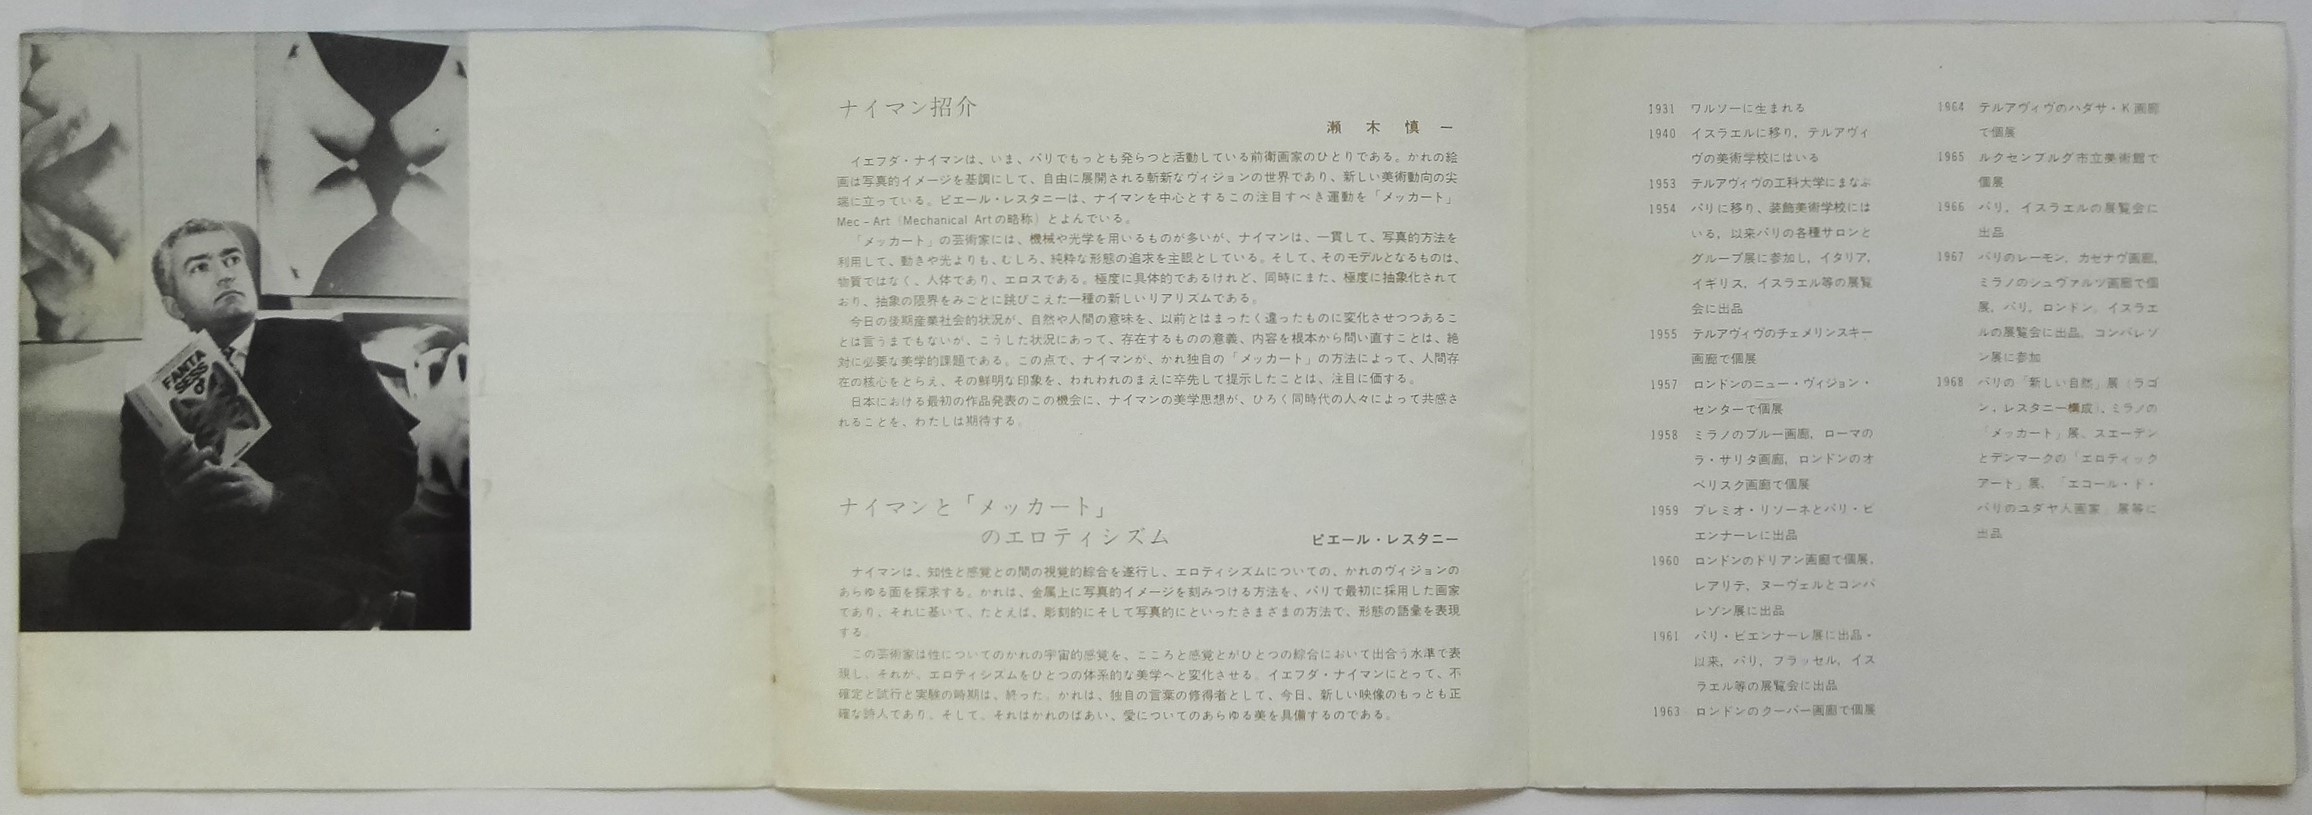 FANTA
SESS
O
ナイマン招介
瀬木慎一
イエフダ・ナイマンは、いま、パリでもっとも発らつと活動している前衛画家のひとりである。かれの絵
画は写真的イメージを基調にして、自由に展開される斬新なヴィジョンの世界であり、新しい美術動向の尖
端に立っている。ピエール・レスタニーは、ナイマンを中心とするこの注目すべき運動を「メッカート」
Mec-Art（Mechanical Artの略称）とよんでいる。
「メッカート」の芸術家には、機械や光学を用いるものが多いが、ナイマンは、一貫して、写真的方法を
利用して、動きや光よりも、むしろ、純粋な形態の追求を主眼としている。そして、そのモデルとなるものは、
物質ではなく、人体であり、エロスである。極度に具体的であるけれど、同時にまた、極度に抽象化されて
おり、抽象の限界をみごとに跳びこえた一種の新しいリアリズムである。
今日の後期産業社会的状況が、自然や人間の意味を、以前とはまったく違ったものに変化させつつあるこ
とは言うまでもないが、こうした状況にあって、存在するものの意義、内容を根本から問い直すことは、絶
対に必要な美学的課題である。この点で、ナイマンが、かれ独自の「メッカート」の方法によって、人間存
在の核心をとらえ、その鮮明な印象を、われわれのまえに卒先して提示したことは、注目に価する。
日本における最初の作品発表のこの機会に、ナイマンの美学思想が、ひろく同時代の人々によって共感さ
れることを、わたしは期待する。
ナイマンと「メッカート」
のエロティシズム
ピエール・レスタニー
ナイマンは、知性と感覚との間の視覚的綜合を遂行し、エロティシズムについての、かれのヴィジョンの
あらゆる面を探求する。かれは、金属上に写真的イメージを刻みつける方法を、パリで最初に採用した画家
であり、それに基いて、たとえば、彫刻的にそして写真的にといったさまざまの方法で、形態の語彙を表現
する。
この芸術家は性についてのかれの宇宙的感覚を、こころと感覚とがひとつの綜合において出合う水準で表
現し、それが、エロティシズムをひとつの体系的な美学へと変化させる。イエフダ・ナイマンにとって、不
確定と試行と実験の時期は、終った。かれは、独自の言葉の修得者として、今日、新しい映像のもっとも正
確な詩人であり、そして、それはかれのばあい、愛についてのあらゆる美を具備するのである。
1931 ワルソーに生まれる
1940 イスラエルに移り，テルアヴィ
ヴの美術学校にはいる
1953 テルアヴィヴの工科大学にまなぶ
1954 パリに移り、装飾美術学校には
いる，以来パリの各種サロンと
グループ展に参加し，イタリア，
イギリス，イスラエル等の展覧
会に出品
1955 テルアヴィヴのチェメリンスキー
画廊で個展
1957 ロンドンのニュー・ヴィジョン・
センターで個展
1958 ミラノのブルー画廊，ローマの
ラ・サリタ画廊，ロンドンのオ
ベリスク画廊で個展
1959 プレミオ・リソーネとパリ・ビ
エンナーレに出品
1960 ロンドンのドリアン画廊で個展，
レアリテ，ヌーヴェルとコンパ
レゾン展に出品
1961 パリ・ビエンナーレ展に出品・
以来，パリ，ブラッセル，イス
ラエル等の展覧会に出品
1963 ロンドンのクーパー画廊で個展
1964 テルアヴィヴのハダサ・K画廊
で個展
1965 ルクセンブルグ市立美術館で
個展
1966 パリ，イスラエルの展覧会に
出品
1967 パリのレーモン，カゼナヴ画廊，
ミラノのシュヴァルツ画廊で個
展，パリ，ロンドン，イスラエ
ルの展覧会に出品，コンパレゾ
ン展に参加
1968 パリの「新しい自然」展（ラゴ
ン，レスタニー構成），ミラノの
「メッカート」展、スエーデン
とデンマークの「エロティック
アート」展，「エコール・ド・
パリのユダヤ人画家」展等に
出品